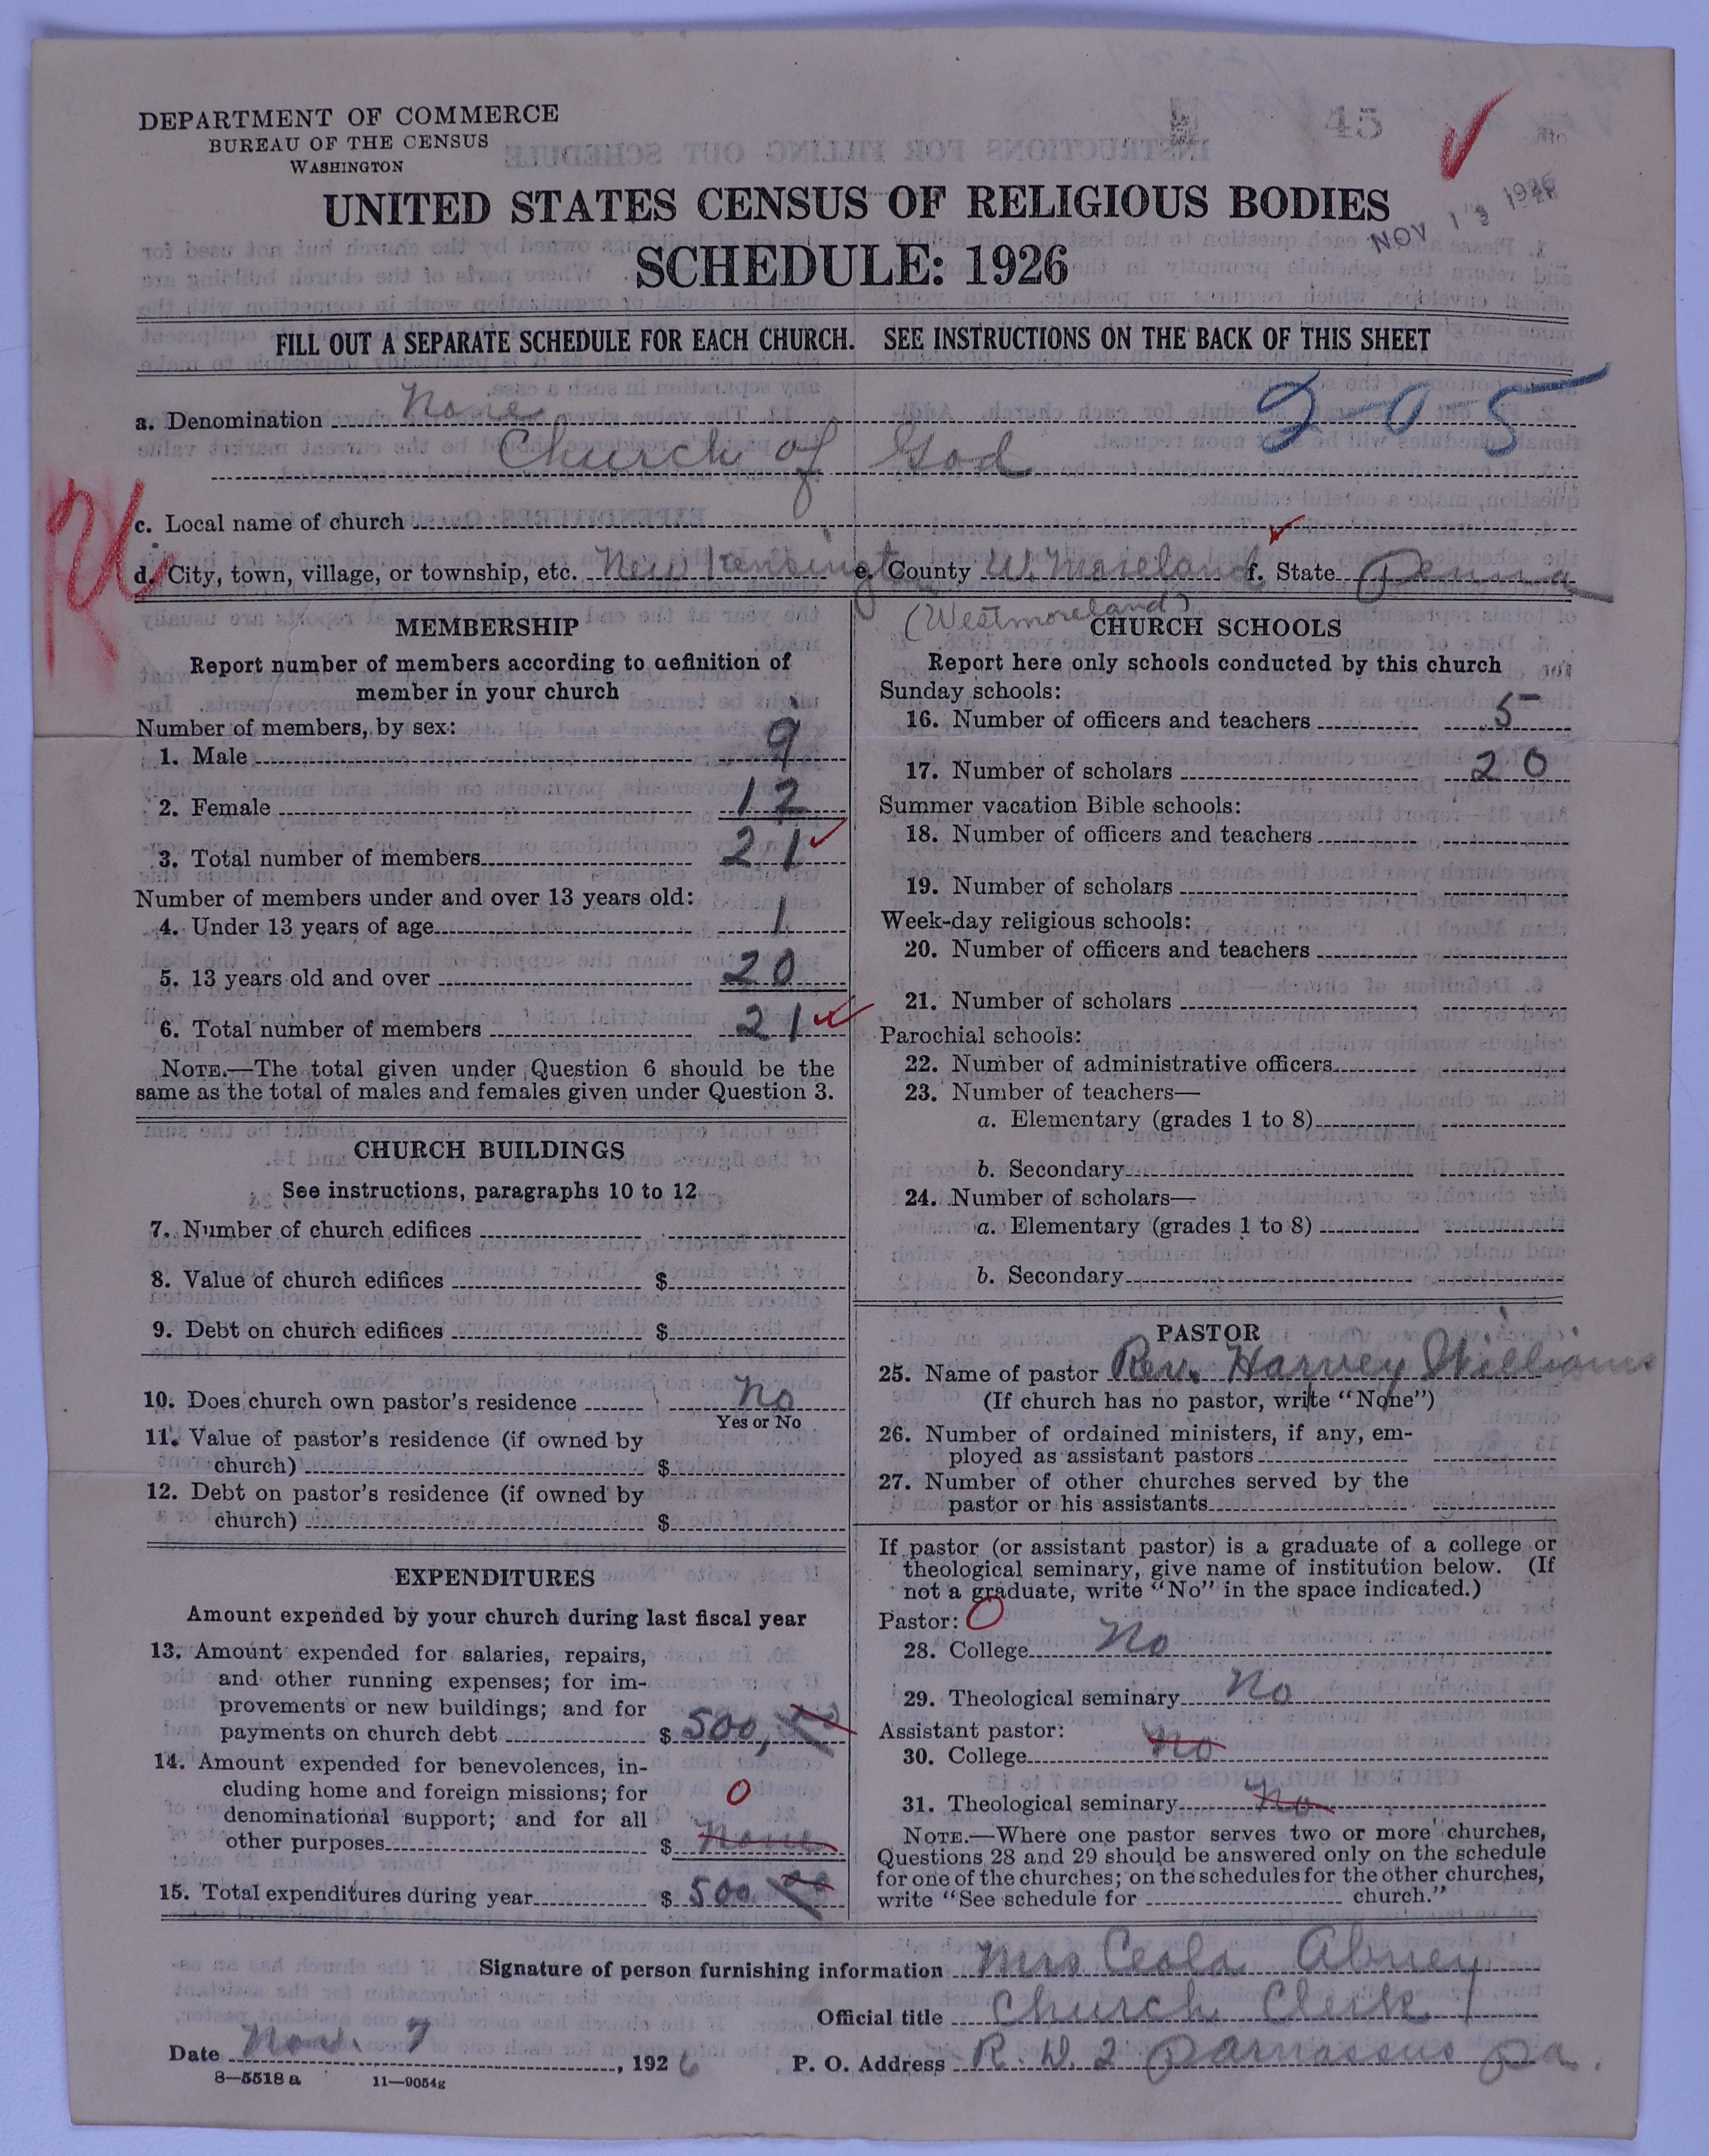 DEPARTMENT OF COMMERCE
BUREAU OF THE CENSUS
WASHINGTON
45
NOV 13 1926
UNITED STATES CENSUS OF RELIGIOUS BODIES
SCHEDULE: 1926
FILL OUT A SEPARATE SCHEDULE FOR EACH CHURCH. SEE INSTRUCTIONS ON THE BACK OF THIS SHEET
a. Denomination None
2-0-5
Church of God
c. Local name of church
d. City, town, village, or township, etc. New Kensington e. County W. Moreland f. State Penna
(Westmoreland)
MEMBERSHIP
Report number of members according to definition of
member in your church
Number of members, by sex:
1. Male 9
2. Female 12
3. Total number of members 21
Number of members under and over 13 years old:
4. Under 13 years of age 1
5. 13 years old and over 20
6. Total number of members 21
NOTE.—The total given under Question 6 should be the
same as the total of males and females given under Question 3.
CHURCH BUILDINGS
See instructions, paragraphs 10 to 12
7. Number of church edifices
8. Value of church edifices $
9. Debt on church edifices $
10. Does church own pastor's residence No
Yes or No
11. Value of pastor's residence (if owned by
church) $
12. Debt on pastor's residence (if owned by
church) $
EXPENDITURES
Amount expended by your church during last fiscal year
13. Amount expended for salaries, repairs,
and other running expenses; for im-
provements or new buildings; and for
payments on church debt $ 500, 00
14. Amount expended for benevolences, in-
cluding home and foreign missions; for 0
denominational support; and for all
other purposes $ None
15. Total expenditures during year $ 500 00
CHURCH SCHOOLS
Report here only schools conducted by this church
Sunday schools:
16. Number of officers and teachers 5
17. Number of scholars 20
Summer vacation Bible schools:
18. Number of officers and teachers
19. Number of scholars
Week-day religious schools:
20. Number of officers and teachers
21. Number of scholars
Parochial schools:
22. Number of administrative officers
23. Number of teachers—
a. Elementary (grades 1 to 8)
b. Secondary
24. Number of scholars—
a. Elementary (grades 1 to 8)
b. Secondary
PASTOR
25. Name of pastor Rev. Harvey Williams
(If church has no pastor, write "None")
26. Number of ordained ministers, if any, em-
ployed as assistant pastors
27. Number of other churches served by the
pastor or his assistants
If pastor (or assistant pastor) is a graduate of a college or
theological seminary, give name of institution below. (If
not a graduate, write "No" in the space indicated.)
Pastor: O
28. College No
29. Theological seminary No
Assistant pastor:
30. College No
31. Theological seminary No
NOTE.—Where one pastor serves two or more churches,
Questions 28 and 29 should be answered only on the schedule
for one of the churches; on the schedules for the other churches,
write "See schedule for church."
Signature of person furnishing information Mrs Ceola Abney
Official title Church Clerk
Date Nov. 7, 1926 P. O. Address R. D. 2 Parnassus Pa.
8—5518 a 11—9054g